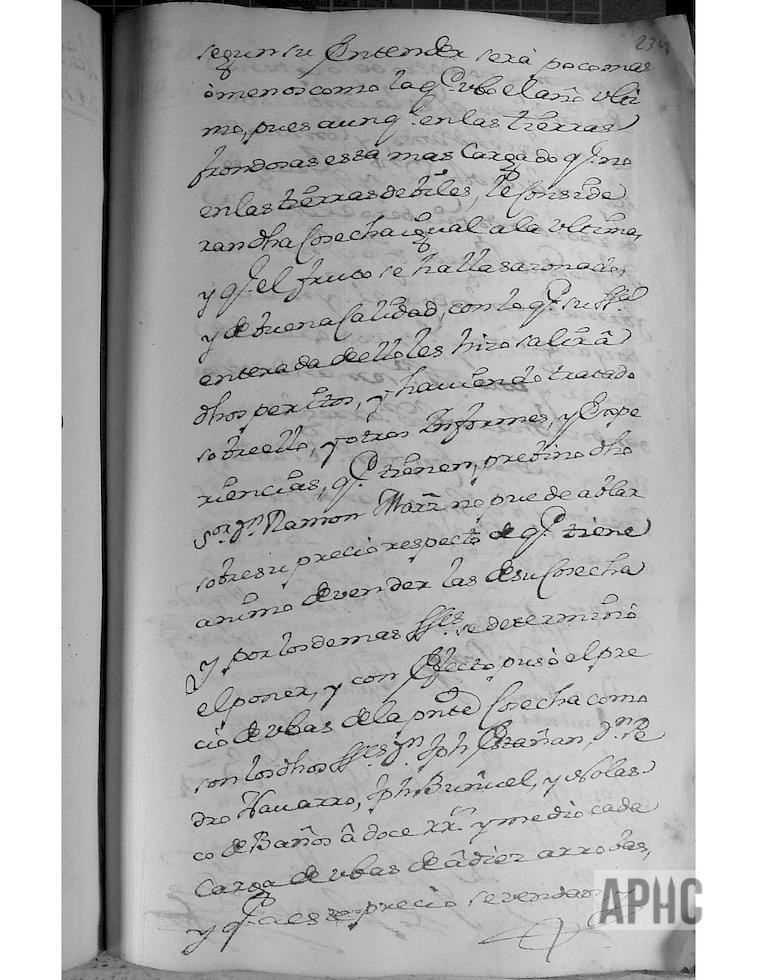 234
segun su Entender será poco mas
ó menos como la q.e vbo el año vlti
mo, pues aunq.e en las tierras
frondosas esta mas Cargado q.e no
en las tierras debiles, se Conside
ran dha Cosecha igual a la vltima,
y q.e el fruto se halla sazonado,
y de buena Calidad, con lo q.e su SS.a
enterada de ello les hizo salir â
dhos peritos, y haviendo tratado
sobre ello, y otros Informes, y Expe
riencias, q.e tienen, prebino dho
S.or D.n Ramon Marz no puede ablar
sobre su precio respecto de q.e tiene
animo de vender las de su Cosecha
y por los demas SS.res se determinó
el poner, y con Efecto puso el pre
cio de vbas de la pnte Cosecha como
son los dhos SS.res D.n Jph Estañan, D.n Pe
dro Navarro, Jph Buñuel, y Nolas
co de Baños â doce rr.s y medio cada
Carga de vbas de â diez arrobas,
y q.e a ese precio se vendan, y
APHC